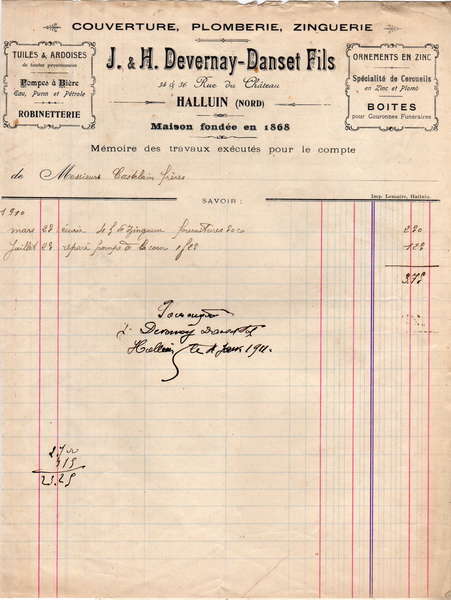 COUVERTURE, PLOMBERIE, ZINGUERIE
TUILES & ARDOISES
de toutes provenances
Pompes à Bière
Eau, Purin et Pétrole
ROBINETTERIE
J. & H. Devernay-Danset Fils
34 & 36 Rue du Château
HALLUIN (NORD)
Maison fondée en 1868
ORNEMENTS EN ZINC
Spécialité de Cercueils
en Zinc et Plomb
BOITES
pour Couronnes Funéraires
Mémoire des travaux exécutés pour le compte
de Messieurs Castelain frères
Imp. Lemaire, Halluin.
SAVOIR :
1910
mars 28 écurie 4 h de zingueur fournitures
Juillet 23 réparé pompe de la cour
375
Pour acquit
J. Devernay Danset
Halluin le 1911.